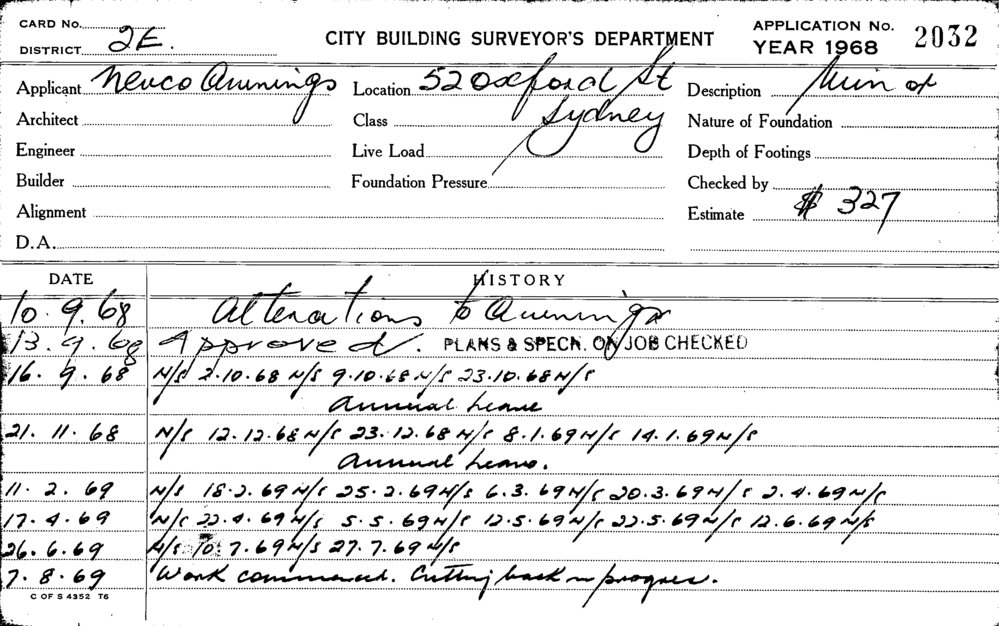 CARD No.
DISTRICT 2E.
CITY BUILDING SURVEYOR'S DEPARTMENT
APPLICATION No.
YEAR 1968 2032
Applicant Nenco Awnings Location 52 Oxford St Description Min of
Architect Class Sydney Nature of Foundation
Engineer Live Load Depth of Footings
Builder Foundation Pressure Checked by
Alignment Estimate $ 327
D.A.
DATE HISTORY
10.9.68 Alterations to Awnings
13.9.68 Approved. PLANS & SPECN. ON JOB CHECKED
16.9.68 N/S 2.10.68 N/S 9.10.68 N/S 23.10.68 N/S
Annual Leave
21.11.68 N/S 12.12.68 N/S 23.12.68 N/S 8.1.69 N/S 14.1.69 N/S
Annual Leave.
11.2.69 N/S 18.2.69 N/S 25.2.69 N/S 6.3.69 N/S 20.3.69 N/S 2.4.69 N/S
17.4.69 N/S 22.4.69 N/S 5.5.69 N/S 12.5.69 N/S 22.5.69 N/S 12.6.69 N/S
26.6.69 N/S 10.7.69 N/S 27.7.69 N/S
7.8.69 Work commenced. Cutting back in progress.
C OF S 4352 T6